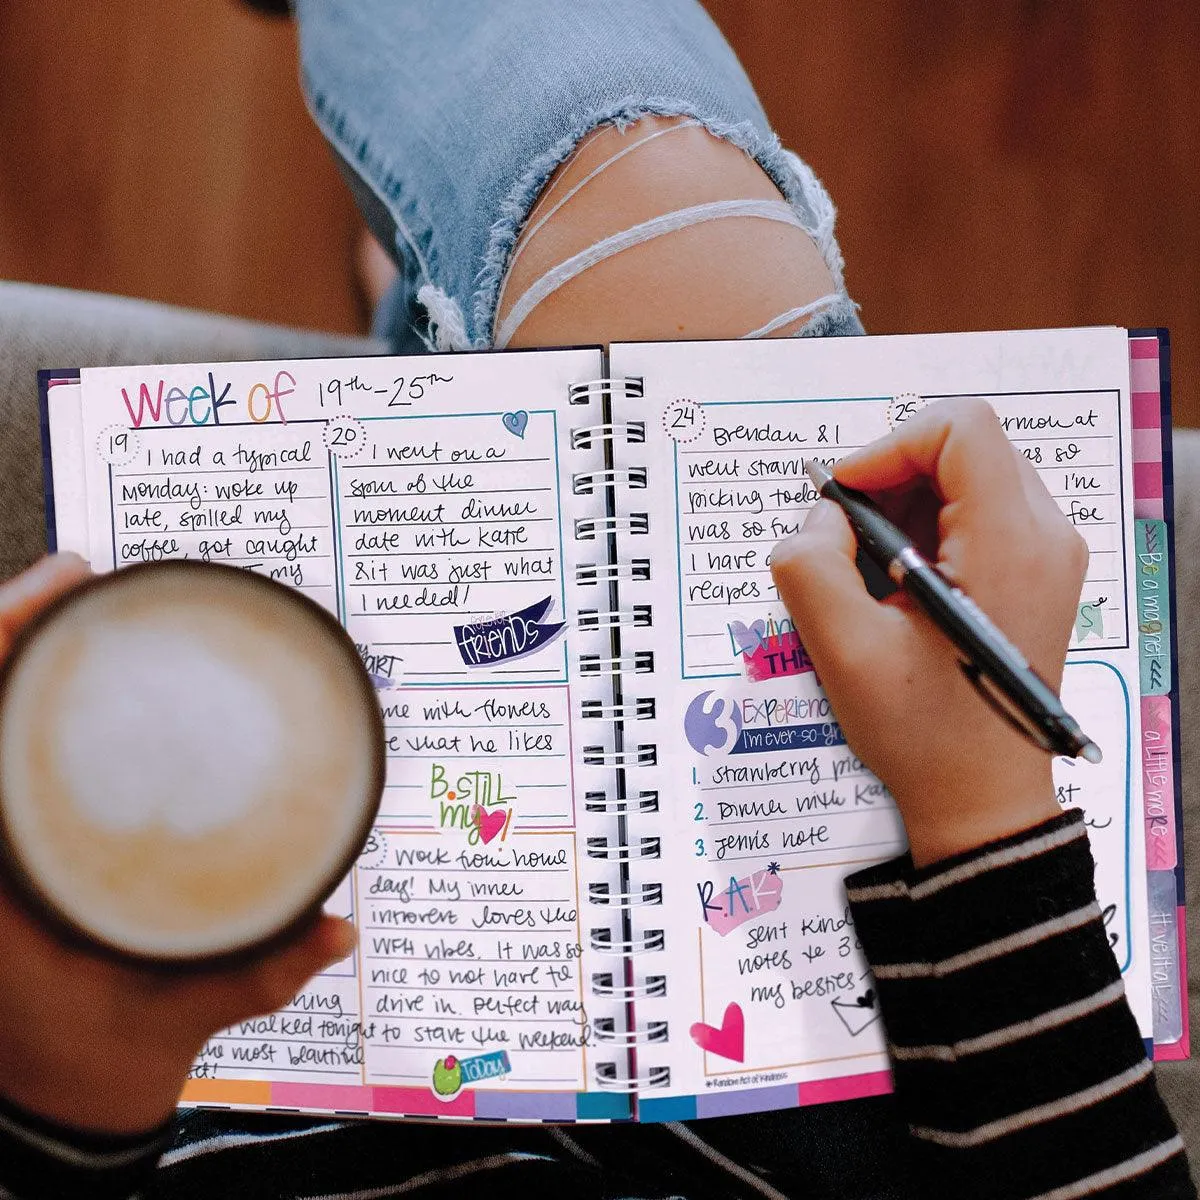 Week of 19th-25th
19
I had a typical
Monday: woke up
late, spilled my
coffee, got caught
my
20
I went on a
spur of the
moment dinner
date with Katie
& it was just what
I needed!
forever
friends
ART
me with flowers
e that he likes
B.STILL
my
3
Work from home
day! My inner
introvert loves the
WFH vibes. It was so
nice to not have to
drive in. Perfect way
to start the weekend!
ToDay
hing
I walked tonight
the most beautiful
24
Brendan & I
went
picking
was so
I have
recipes
Lovin'
THIS
3
I'm ever so
1. strawberry
2. Dinner with
3. Jenn's note
R.A.K*
sent kind
notes to 3
my besties
*Random Act of Kindness
25
at
as so
I'm
for
S
Be a magnet <<<
Be a little more <<<